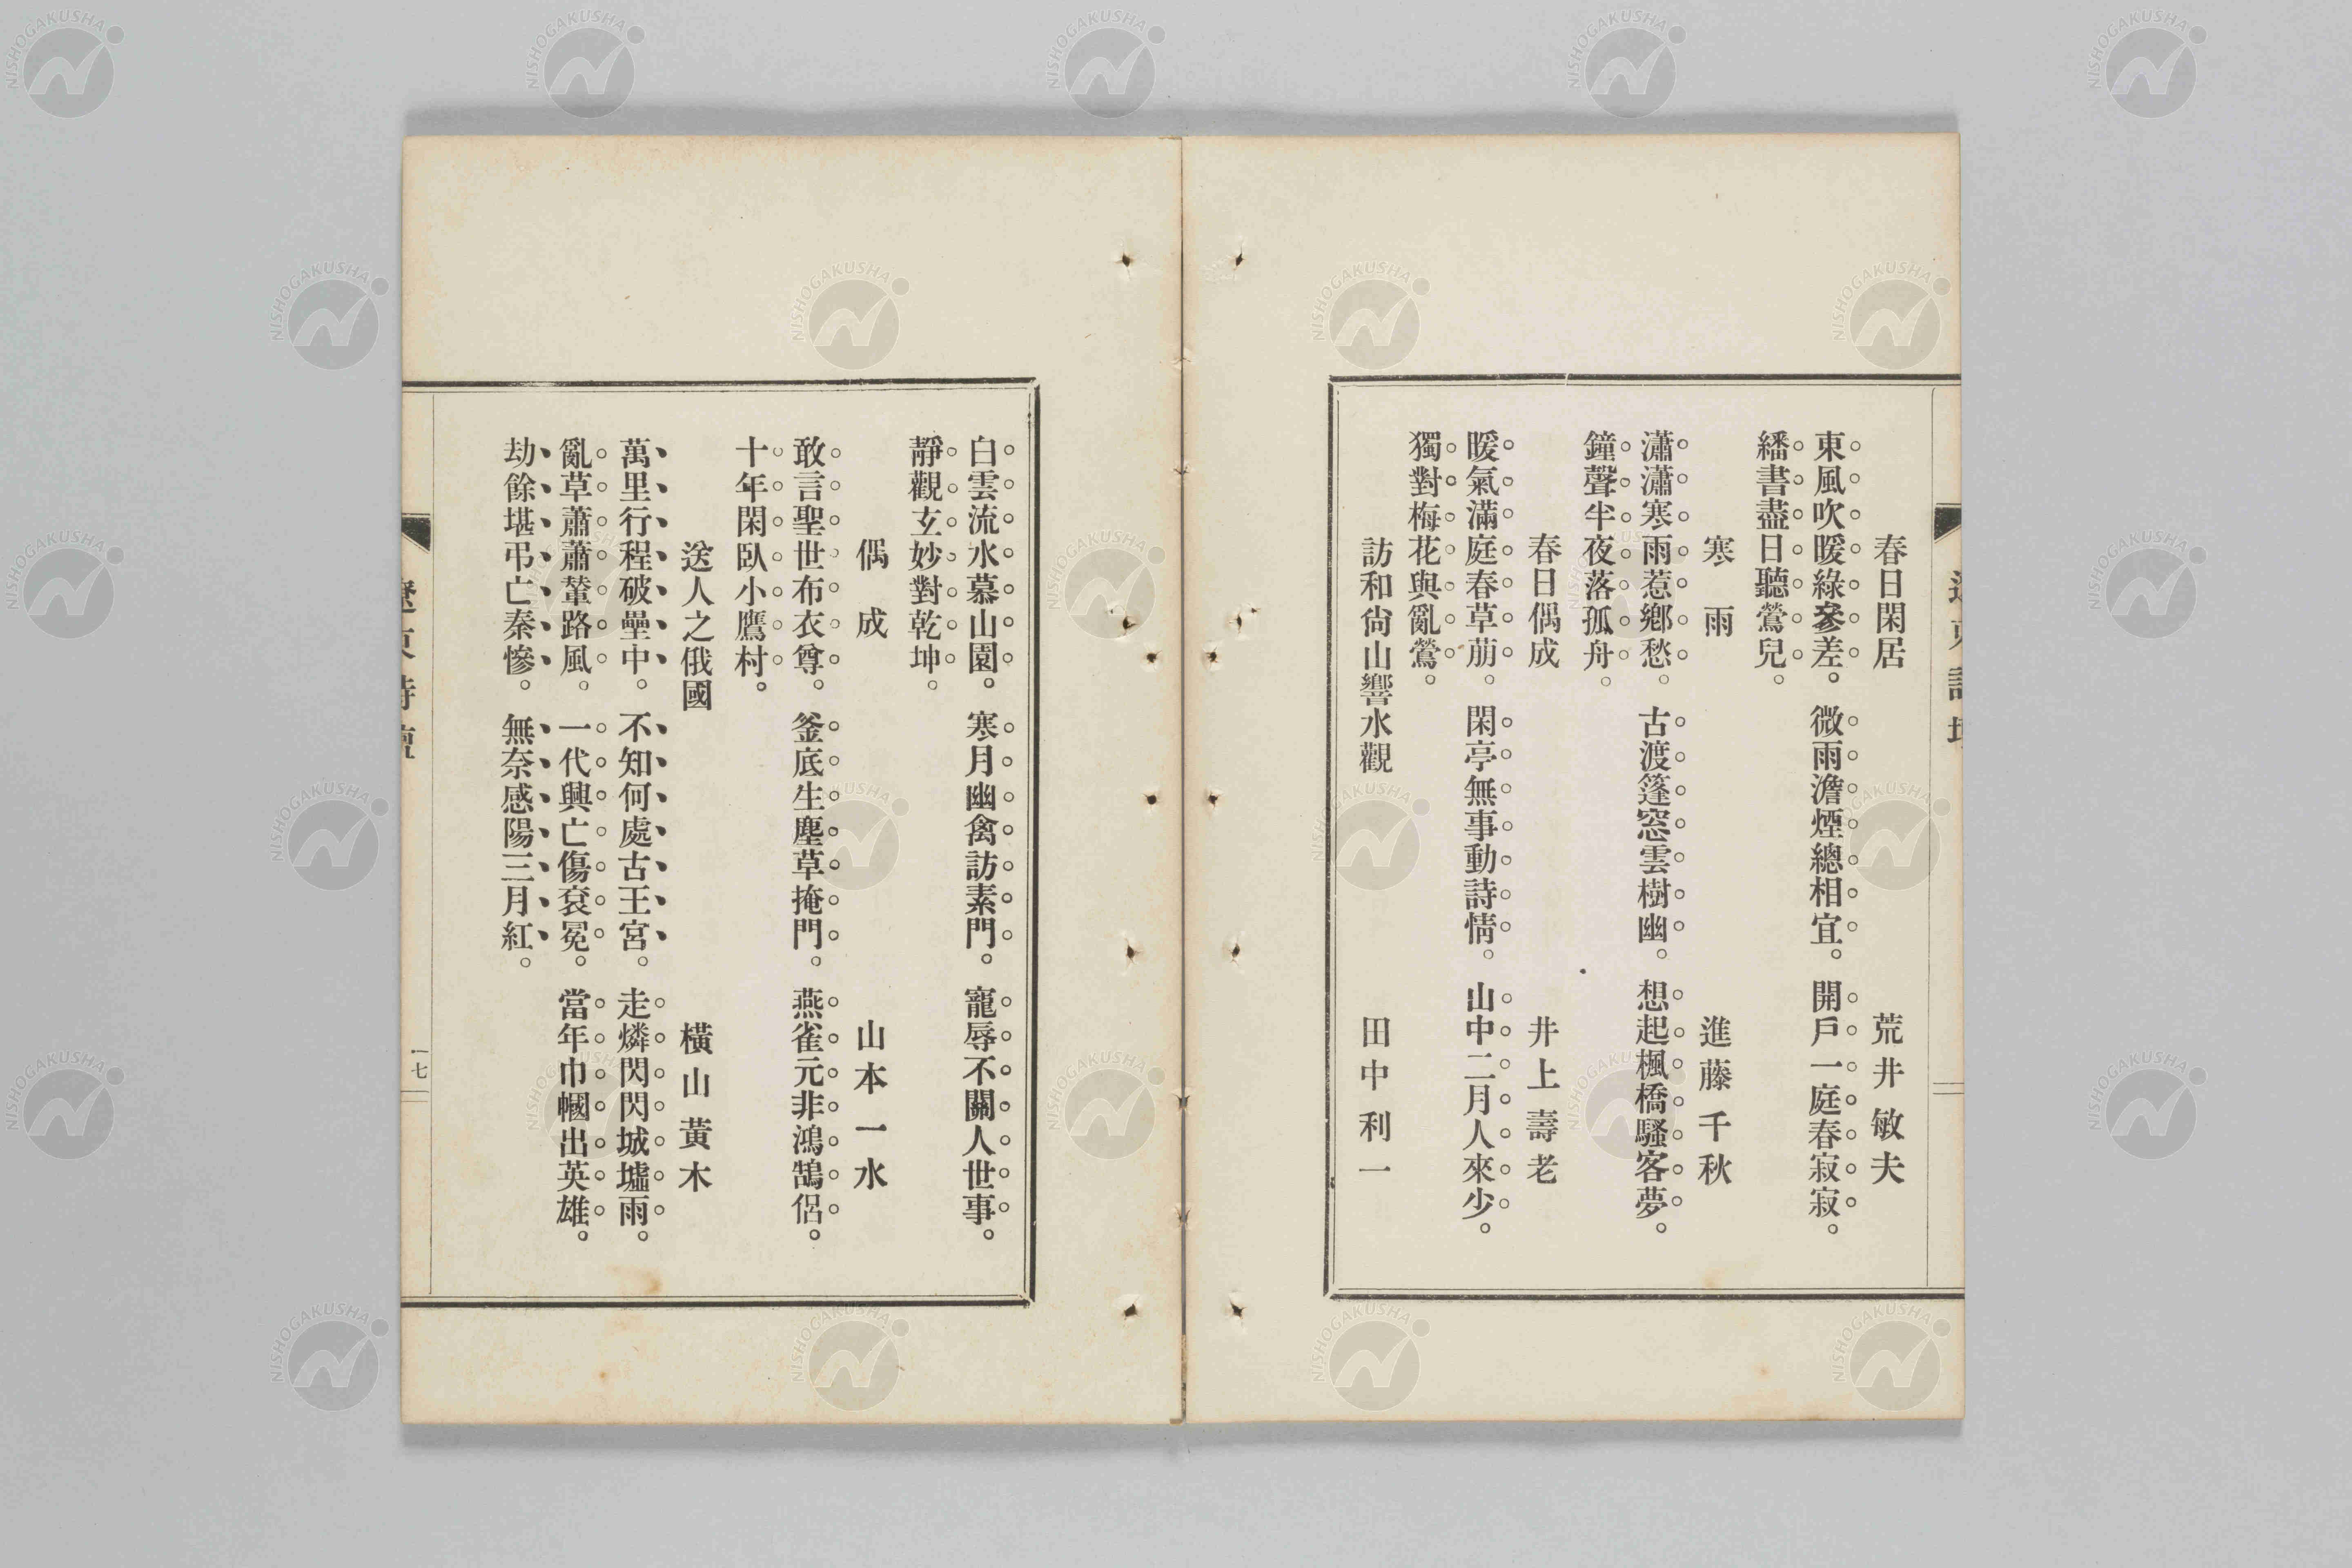 春日閑居　荒井敏夫
東風吹暖綠參差。微雨澹煙總相宜。開戶一庭春寂寂。
繙書盡日聽鶯兒。
寒雨　進藤千秋
瀟瀟寒雨惹鄉愁。古渡篷窓雲樹幽。想起楓橋騷客夢。
鐘聲半夜落孤舟。
春日偶成　井上壽老
暖氣滿庭春草萠。閑亭無事動詩情。山中二月人來少。
獨對梅花與亂鶯。
訪和尙山響水觀　田中利一
白雲流水慕山園。寒月幽禽訪素門。寵辱不關人世事。
靜觀玄妙對乾坤。
偶成　山本一水
敢言聖世布衣尊。釜底生塵草掩門。燕雀元非鴻鵠侶。
十年閑臥小鷹村。
送人之俄國　橫山黃木
萬里行程破壘中。不知何處古王宮。走燐閃閃城墟雨。
亂草蕭蕭輦路風。一代興亡傷袞冕。當年巾幗出英雄。
劫餘堪弔亡秦慘。無奈感陽三月紅。
遼東詩壇
一七
NISHOGAKUSHA